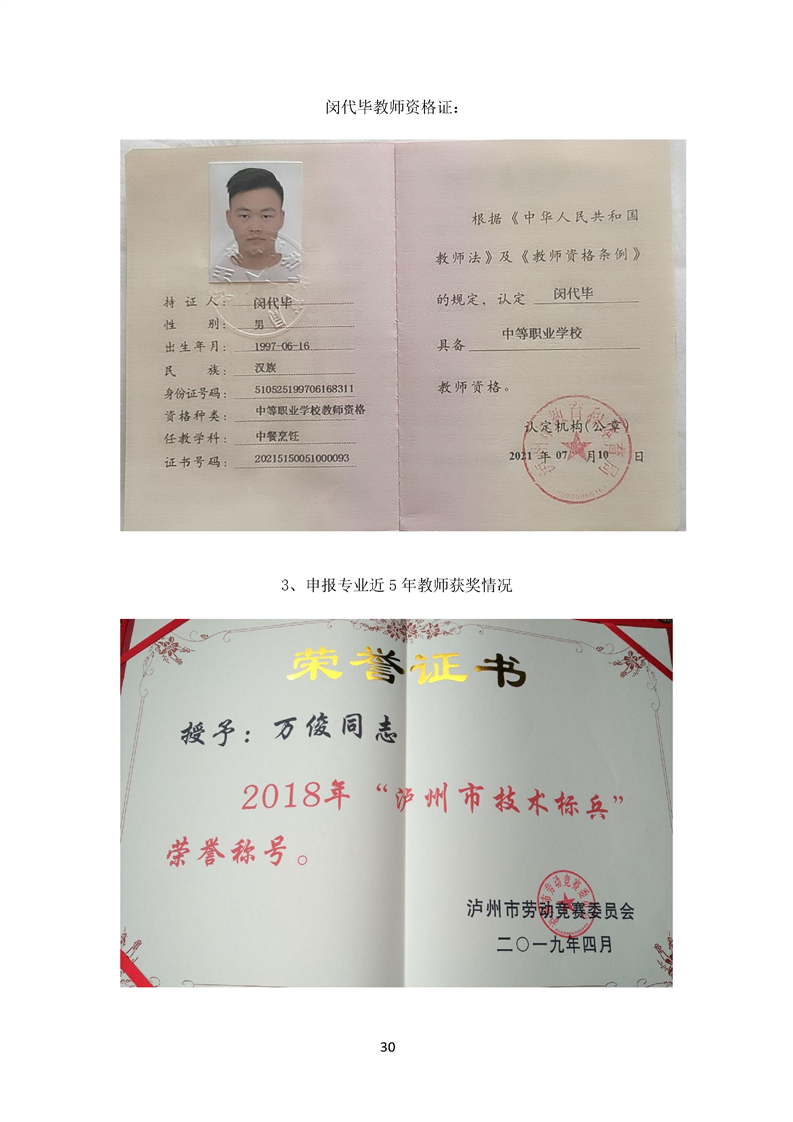 闵代毕教师资格证：
持 证 人： 闵代毕
性 别： 男
出生年月： 1997-06-16
民 族： 汉族
身份证号码： 510525199706168311
资格种类： 中等职业学校教师资格
任教学科： 中餐烹饪
证书号码： 20215150051000093
根据《中华人民共和国
教师法》及《教师资格条例》
的规定，认定 闵代毕
具备 中等职业学校
教师资格。
认定机构(公章)
2021 年 07 月 10 日
3、申报专业近 5 年教师获奖情况
荣誉证书
授予：万俊同志
2018年“泸州市技术标兵”
荣誉称号。
泸州市劳动竞赛委员会
二〇一九年四月
30